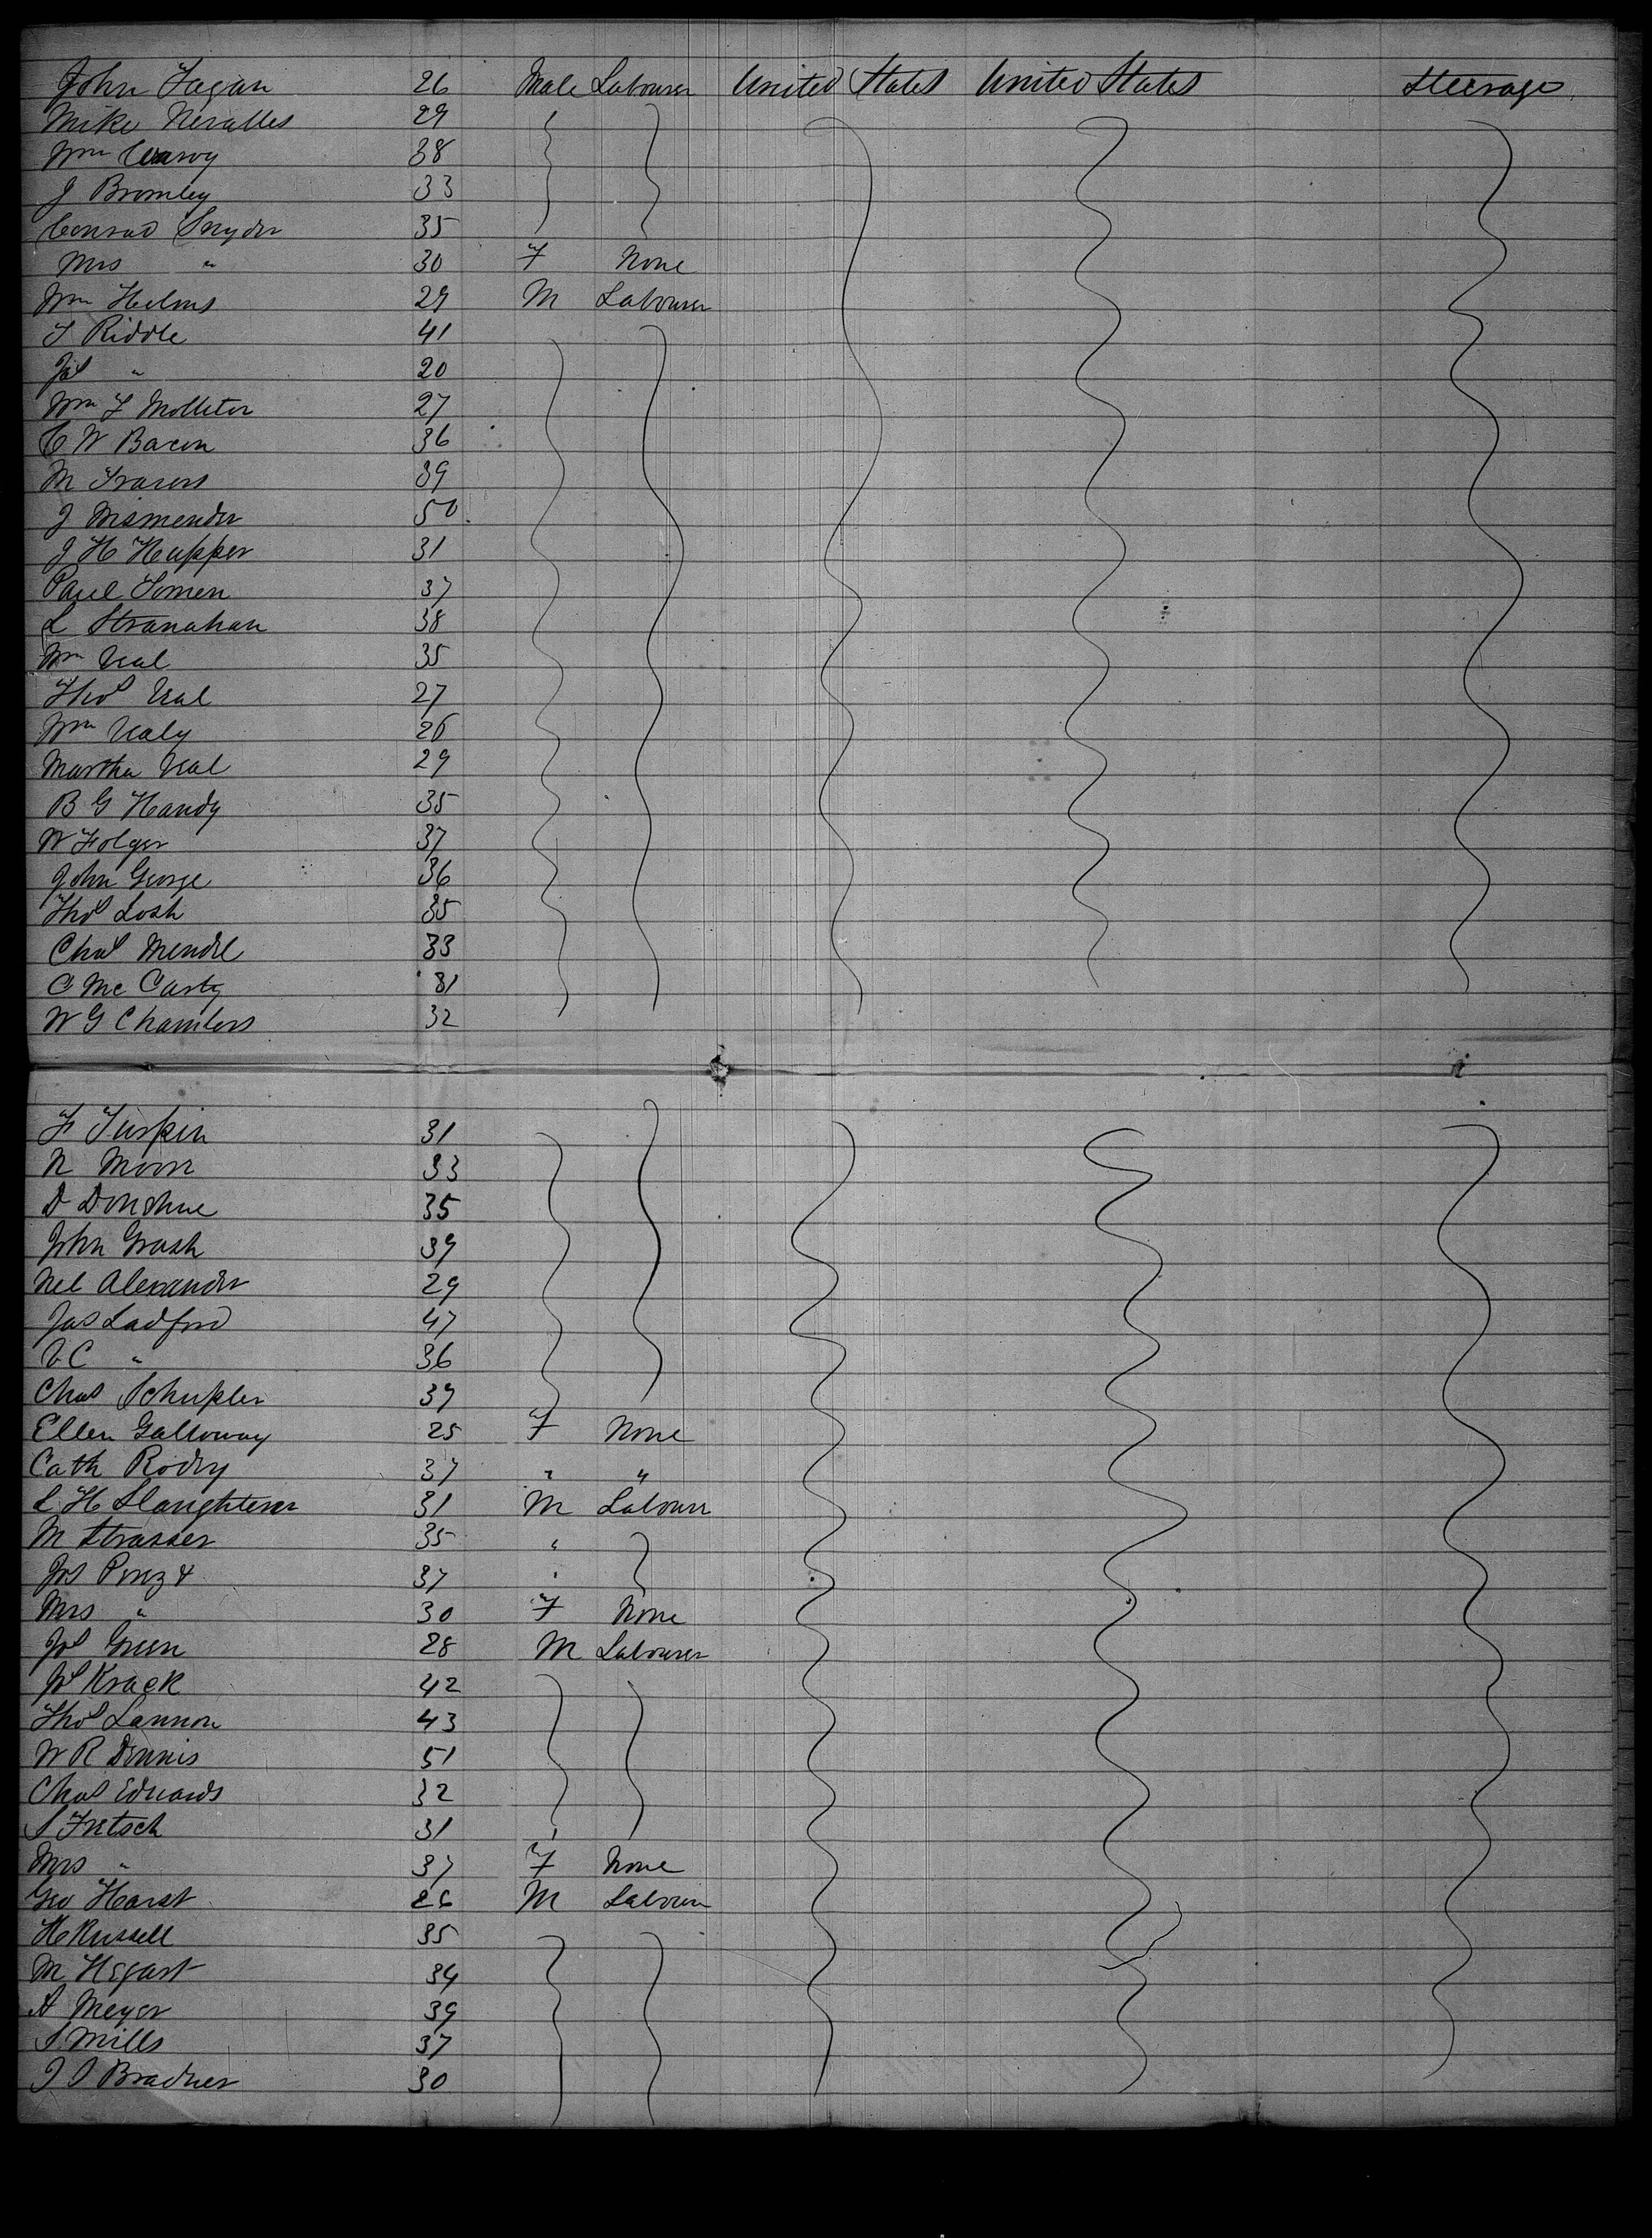 John Fagan 26 Male Labourer United States United States Steerage
Mike Neralles 29
Wm Conroy 38
J Bromley 33
Conrad Snyder 35
Mrs " 30 F None
Wm Helms 29 M Labourer
T Riddle 41
Jas " 20
Wm F Molleter 27
C W Bacon 36
M Travers 39
J Mismender 50
J H Hupper 31
Paul Tomen 37
L Stranahan 38
Wm Ural 35
Thos Ural 27
Wm Ualy 26
Martha Ural 29
B G Handy 35
W Folger 37
John George 36
Thos Losh 35
Chas Mendel 33
C McCarty 31
W G Chambers 32
F Turpin 31
N Moore 33
D Donohue 35
John Grash 39
Nel Alexander 29
Jas Ladford 47
V C " 36
Chas Schupler 39
Ellen Galloway 25 F None
Cath Rodry 37 " "
L H Slaughterer 31 M Labourer
M Strasser 35 "
Jos 37 "
Mrs " 30 F None
Jos Green 28 M Labourer
Jos Krack 42
Thos Lannon 43
W R Dennis 51
Chas Edwards 32
S Fretsch 31 "
Mrs " 37 F None
Geo Harst 26 M Labourer
H Russell 35
M Hegart 34
A Meyer 39
S Mills 37
J S Bradner 30